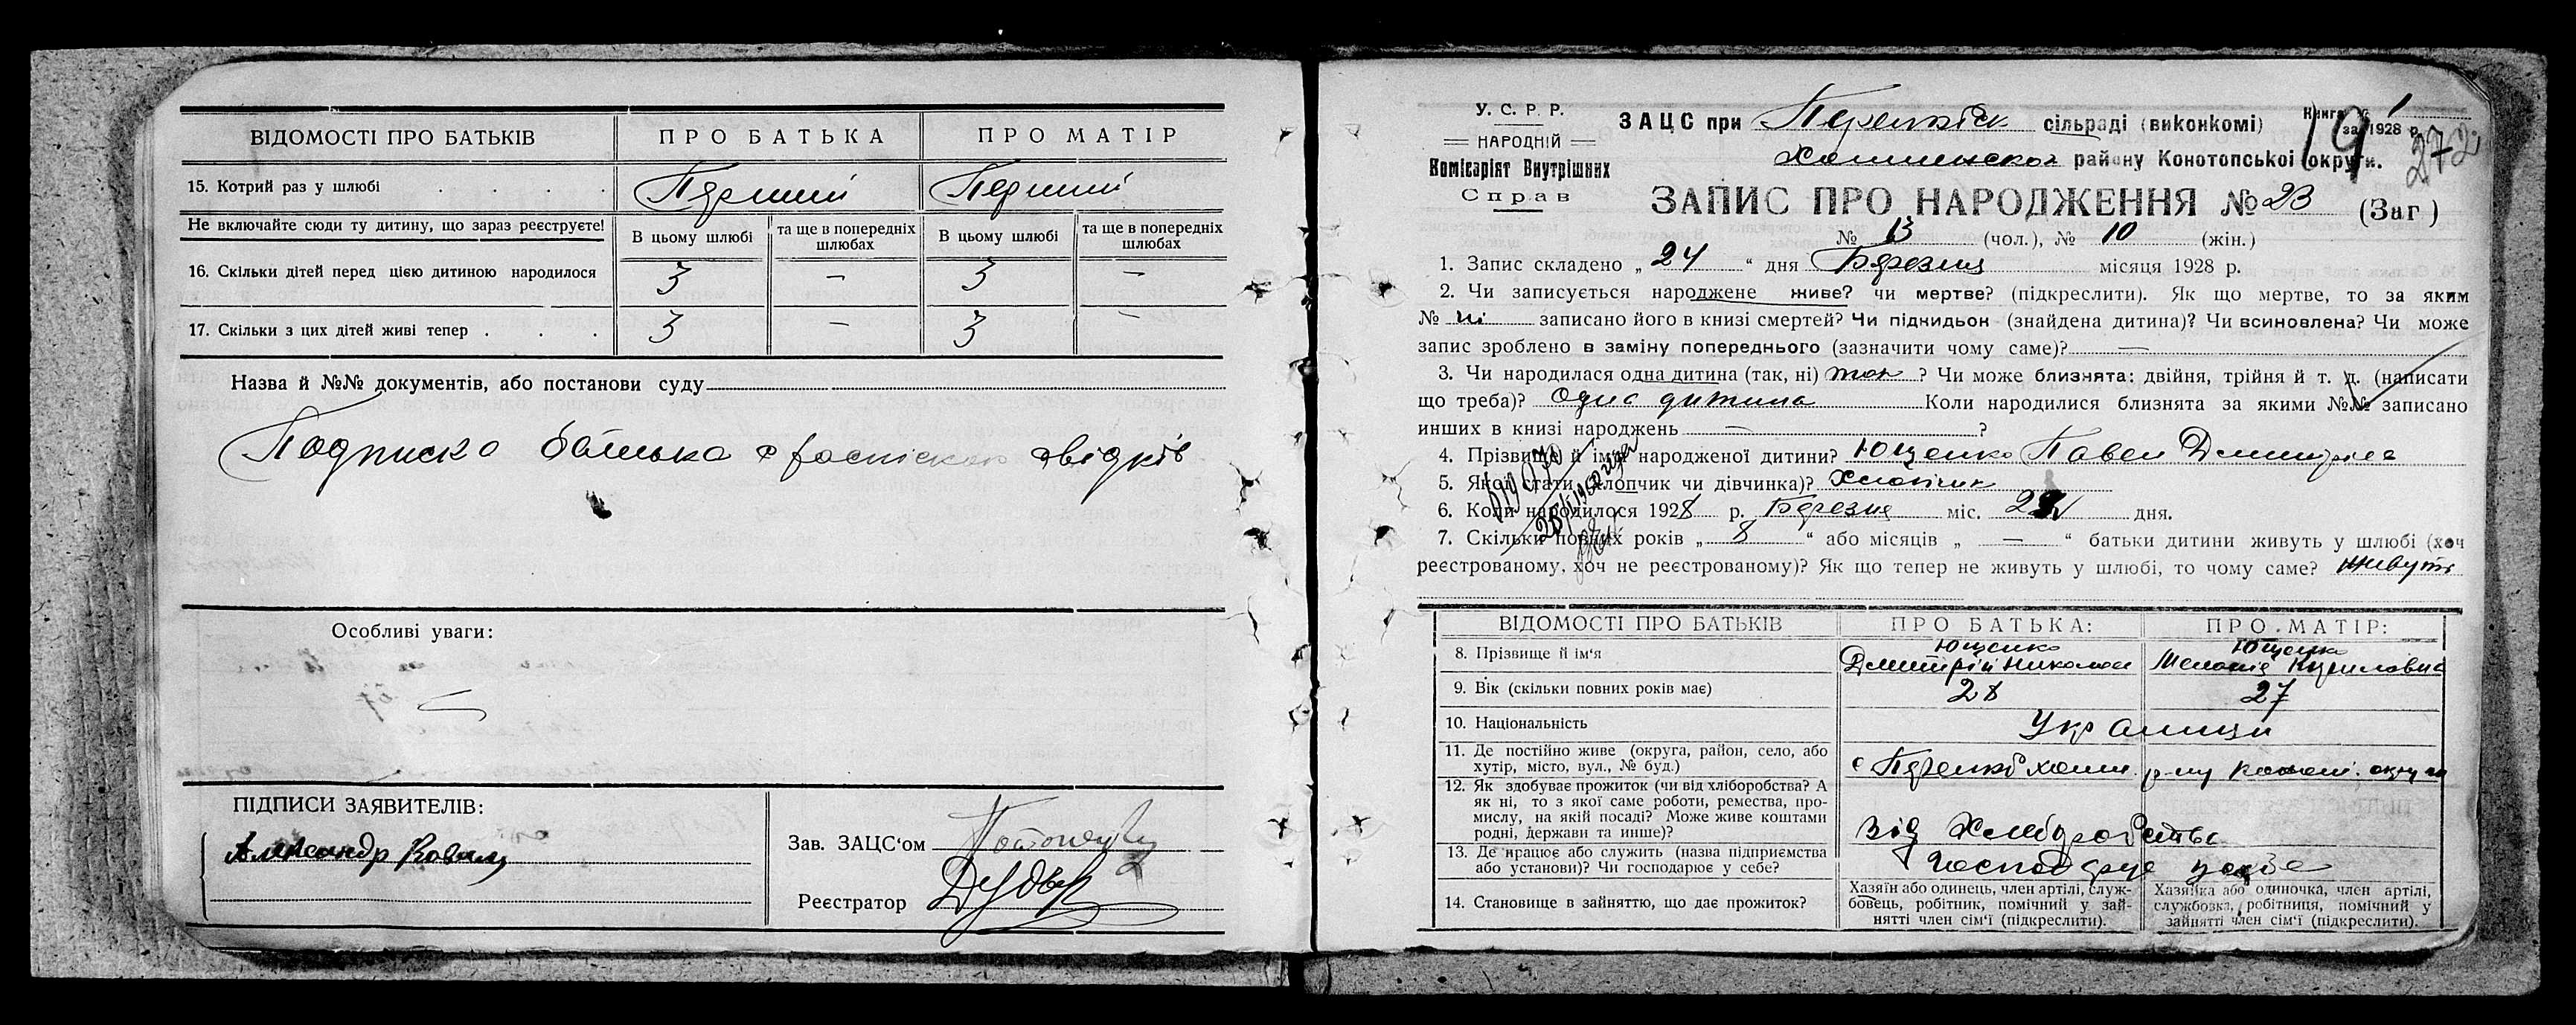 ВІДОМОСТІ ПРО БАТЬКІВ
ПРО БАТЬКА
ПРО МАТІР
15. Котрий раз у шлюбі
Перший
Перший
Не включайте сюди ту дитину, що зараз реєструєте!
В цьому шлюбі
та ще в попередніх шлюбах
В цьому шлюбі
та ще в попередніх шлюбах
16. Скільки дітей перед цією дитиною народилося
3 — 3 —
17. Скільки з цих дітей живі тепер
3 — 3 —
Назва й №№ документів, або постанови суду
Подписка батька с роспіскою свідків
Особливі уваги:
ПІДПИСИ ЗАЯВИТЕЛІВ:
Александр Коваль
Зав. ЗАЦС'ом
Реєстратор
У. С. Р. Р.
НАРОДНІЙ
Комісаріят Внутрішних
Справ
ЗАЦС при сільраді (виконкомі)
Книга
за 1928 р.
19
272
району Конотопської округи.
ЗАПИС ПРО НАРОДЖЕННЯ № 23 (Заг)
№ 13 (чол.), № 10 (жін.)
1. Запис складено „ 24 “ дня Березня місяця 1928 р.
2. Чи записується народжене живе? чи мертве? (підкреслити). Як що мертве, то за яким
№ ні записано його в книзі смертей? Чи підкидьок (знайдена дитина)? Чи всиновлена? Чи може
запис зроблено в заміну попереднього (зазначити чому саме)? —
3. Чи народилася одна дитина (так, ні) так ? Чи може близнята: двійня, трійня й т. д. (написати
що треба)? Одна дитина Коли народилися близнята за якими №№ записано
инших в книзі народжень — ?
4. Прізвище й імя народженої дитини? Ющенко Павел Дмитріев
5. Якої стати (хлопчик чи дівчинка)? Хлопчик
6. Коли народилося 1928 р. Березня міс. дня.
7. Скільки повних років „ 8 “ або місяців „ — “ батьки дитини живуть у шлюбі (хоч
реєстрованому, хоч не реєстрованому)? Як що тепер не живуть у шлюбі, то чому саме? Живуть
ВІДОМОСТІ ПРО БАТЬКІВ
ПРО БАТЬКА:
ПРО МАТІР:
8. Прізвище й ім'я
Ющенко
Дмитрій Николаев
Ющенко
Меланія Кириловна
9. Вік (скільки повних років має)
28
27
10. Національність
Українці
11. Де постійно живе (округа, район, село, або
хутір, місто, вул., № буд.)
12. Як здобуває прожиток (чи від хліборобства? А
як ні, то з якої саме роботи, ремества, про-
мислу, на якій посаді? Може живе коштами
родні, держави та инше)?
Від Хліборобства
13. Де працює або служить (назва підприємства
або установи)? Чи господарює у себе?
Господарює у себе
14. Становище в зайняттю, що дає прожиток?
Хазяїн або одинець, член артілі, служ-
бовець, робітник, помічний у зай-
нятті член сім'ї (підкреслити).
Хазяйка або одиночка, член артілі,
службовка, робітниця, помічний у
зайнятті член сім'ї (підкреслити).